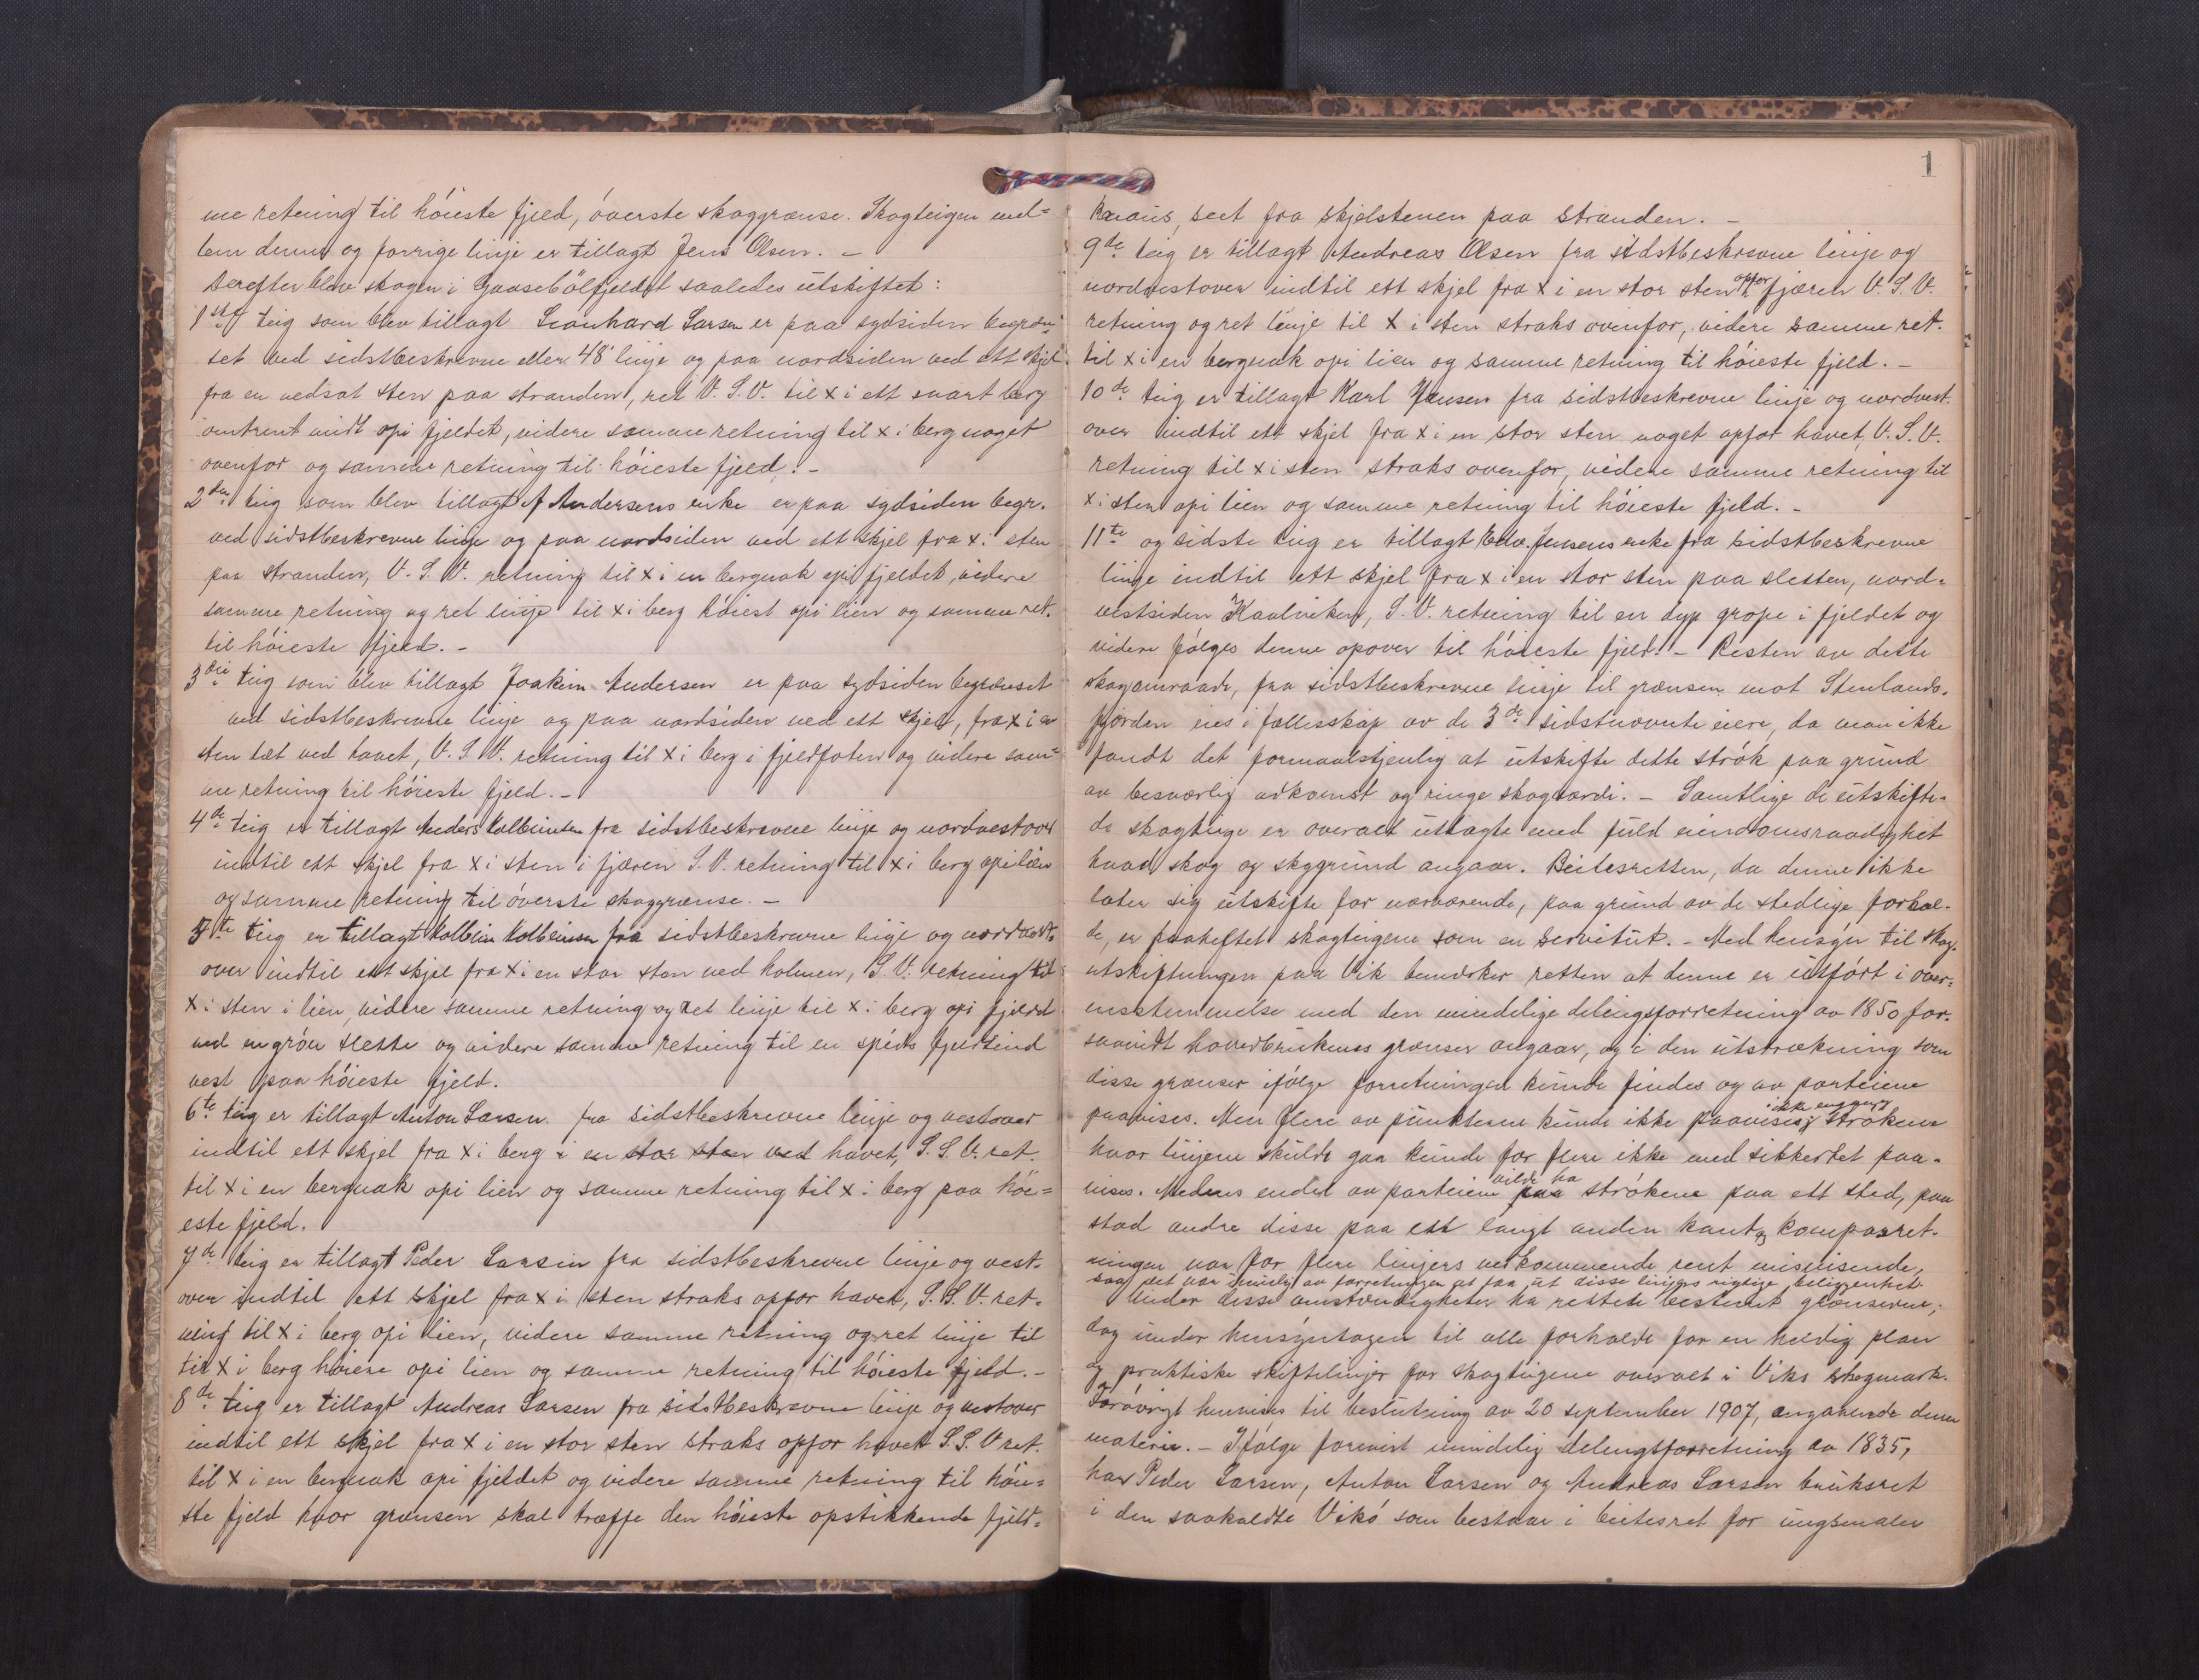 me retning til höieste fjeld, överste skoggrænse. Skogteigen mel=
lem denne og forrige linje er tillagt Jens Olsen. –
Derefter blev skogen i Gaasebölfjeldet saaledes utskiftet:
1ste teig som blev tillagt Leonhard Larsen er paa sydsiden begræn=
set ved sidstbeskrevne eller 48' linje og paa nordsiden ved ett skjel
fra en nedsat sten paa stranden, ret V.S.V. til x i ett svart berg
omtrent midt opi fjeldet, videre samme retning til x i berg noget
ovenfor og samme retning til höieste fjeld. –
2den teig som blev tillagt A Andersens enke er paa sydsiden begr.
ved sidstbeskrevne linje og paa nordsiden ved ett skjel fra x i sten
paa stranden, V.S.V. retning til x i en bergnak opi fjeldet videre
samme retning og ret linje til x i berg höiest opi lien og samme ret.
til höieste fjeld. –
3die teig som blev tillagt Joakim Andersen er paa sydsiden begrænset
ved sidstbeskrevne linje og paa nordsiden ved ett skjel, fra x i en
sten tæt ved havet, V.S.V. retning til x i berg i fjeldfoten og videre sam=
me retning til höieste fjeld. –
4de teig er tillagt Anders Kolbeinsen fra sidstbeskrevne linje og nordvestover
indtil ett skjel fra x i sten i fjæren S.V. retning til x i berg opi lien
og samme retning til överste skoggrænse. –
5te teig er tillagt Kolbein Kolbeinsen fra sidstbeskrevne linje og nordvest=
over indtil ett skjel fra x i en stor sten ved holmen, S.V. retning til
x i sten i lien, videre samme retning og ret linje til x i berg opi fjeldet
ved en grön slette og videre samme retning til en spids fjeldtind
vest paa höieste fjeld.
6te teig er tillagt Anton Larsen fra sidstbeskrevne linje og vestover
indtil ett skjel fra x i berg i en stor sten ved havet, S.S.V. ret.
til x i en bergnak opi lien og samme retning til x i berg paa höi=
este fjeld.
7de teig er tillagt Peder Larsen fra sidstbeskrevne linje og vest=
over indtil ett skjel fra x i sten straks opfor havet, S.S.V. ret=
ning til x i berg opi lien, videre samme retning og ret linje til
til x i berg höiere opi lien og samme retning til höieste fjeld. –
8de teig er tillagt Andreas Larsen fra sidstbeskrevne linje og vestover
indtil ett skjel fra x i en stor sten straks opfor havet S.S.V ret.
til x i en bergnak opi fjeldet og videre samme retning til höie=
ste fjeld hvor grænsen skal træffe den höieste opstikkende fjeld=
1
knaus, seet fra skjelstenen paa stranden. –
9de teig er tillagt Andreas Olsen fra sidstbeskrevne linje og
nordvestover indtil ett skjel fra x i en stor sten opfor fjæren V.S.V.
retning og ret linje til x i sten straks ovenfor, videre samme ret.
til x i en bergnak opi lien og samme retning til höieste fjeld. –
10de teig er tillagt Karl Jensen fra sidstbeskrevne linje og nordvest=
over indtil ett skjel fra x i en stor sten noget opfor havet, V.S.V.
retning til x i sten straks ovenfor, videre samme retning til
x i sten opi lien og samme retning til höieste fjeld. –
11te og sidste teig er tillagt Edv. Jensens enke fra sidstbeskrevne
linje indtil ett skjel fra x i en stor sten paa sletten, nord=
vestsiden Kaalviken, S.V. retning til en dyp grope i fjeldet og
videre fölges denne opover til höieste fjeld. – Resten av dette
skogomraade, fra sidstbeskrevne linje til grænsen mot Stenlands=
fjorden eies i fællesskap av de 3de sidstnævnte eiere, da man ikke
fandt det formaalstjenlig at utskifte dette strök paa grund
av besværlig adkomst og ringe skogværdi. – Samtlige de utskifte=
de skogteige er overalt utlagte med fuld eiendomsraadighet
hvad skog og skoggrund angaar. Beitesretten, da denne ikke
later sig utskifte for nærværende, paa grund av de stedlige forhol=
de, er paaheftet skogteigene som en servitut. – Med hensyn til skog=
utskiftningen paa Vik bemærker retten at denne er utfört i over=
ensstemmelse med den mindelige delingsforretning av 1850 for=
saavidt hovedbrukenes grænser angaar, og i den utstrækning som
disse grænser ifölge forretningen kunde findes og av parteiene
paavises. Men flere av punkterne kunde ikke paavises, ikke engang strökene
hvor linjene skulde gaa kunde for flere ikke med sikkerhet paa=
vises. Medens endel av parteiene vilde ha strökene paa ett sted, paa=
stod andre disse paa ett langt anden kant, og kompasret=
ningen var for flere linjers vedkommende rent misvisende,
saa det var umulig av forretningen at faa ut disse linjers rigtige beliggenhet.
Under disse omstændigheter ha rettede bestemt grænserne,
dog under hensyntagen til alle forholde for en heldig plan
og praktiske skiftelinjer for skogteigene overalt i Viks skogmark.
Forövrigt henvises til beslutning av 20 september 1907, angaaende denne
materie. – Ifölge forevist mindelig delingsforretning av 1835,
har Peder Larsen, Anton Larsen og Andreas Larsen bruksret
i den saakaldte Vikö som bestaar i beitesret for ungsmaler